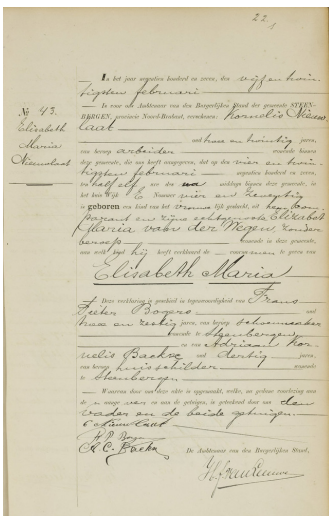 22
No 43.
Elisabeth
Maria
Nieuwlaat
In het jaar negentien honderd en zeven, den vijf en twin-
tigsten februari
is voor ons Ambtenaar van den Burgerlijken Stand der gemeente STEEN-
BERGEN, provincie Noord-Brabant, verschenen: Kornelis Nieuw-
laat
oud twee en twintig jaren,
van beroep arbeider wonende binnen
deze gemeente, die ons heeft aangegeven, dat op den vier en twin-
tigsten februari negentien honderd en zeven,
ten half elf ure des na middags binnen deze gemeente, in
het huis Wijk E Nummer vier en zeventig
is geboren een kind van het vrouwelijk geslacht, uit hem com-
parant en zijne echtgenoote Elizabet
Maria van der Wegen, zonder
beroep wonende in deze gemeente,
aan welk kind hij heeft verklaard de voornamen te geven van
Elisabeth Maria
Deze verklaring is geschied in tegenwoordigheid van Frans
Pieter Bogers oud
twee en zestig jaren, van beroep schoenmaker
wonende te Steenbergen
en van Adriaan Kor-
nelis Baekse oud dertig jaren,
van beroep huisschilder wonende
te Steenbergen
Waarvan door ons deze akte is opgemaakt, welke, na gedane voorlezing aan
de aangever en aan de getuigen, is geteekend door ons den
vader en de beide getuigen.
C Nieuwlaat
De Ambtenaar van den Burgerlijken Stand,